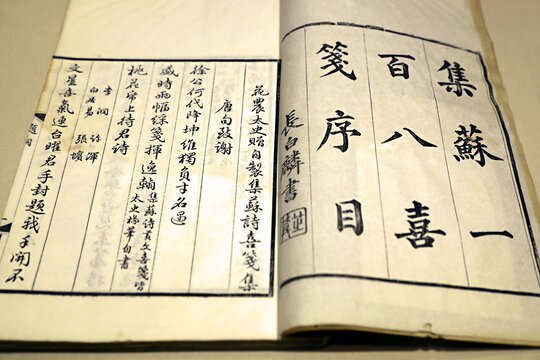 集蘇一
百八喜
箋序目
長白麟書
花農太史贈自製集蘇詩喜箋集
唐句致謝
徐公何代降坤維獨負才名遇
盛時兩幅綵箋揮逸翰
集蘇詩 文喜箋皆
太史椽筆自書
桃花帋上待君詩
李洞 許渾
白居易 張蠙
文星喜氣連台曜君手封題我手開不
題詞